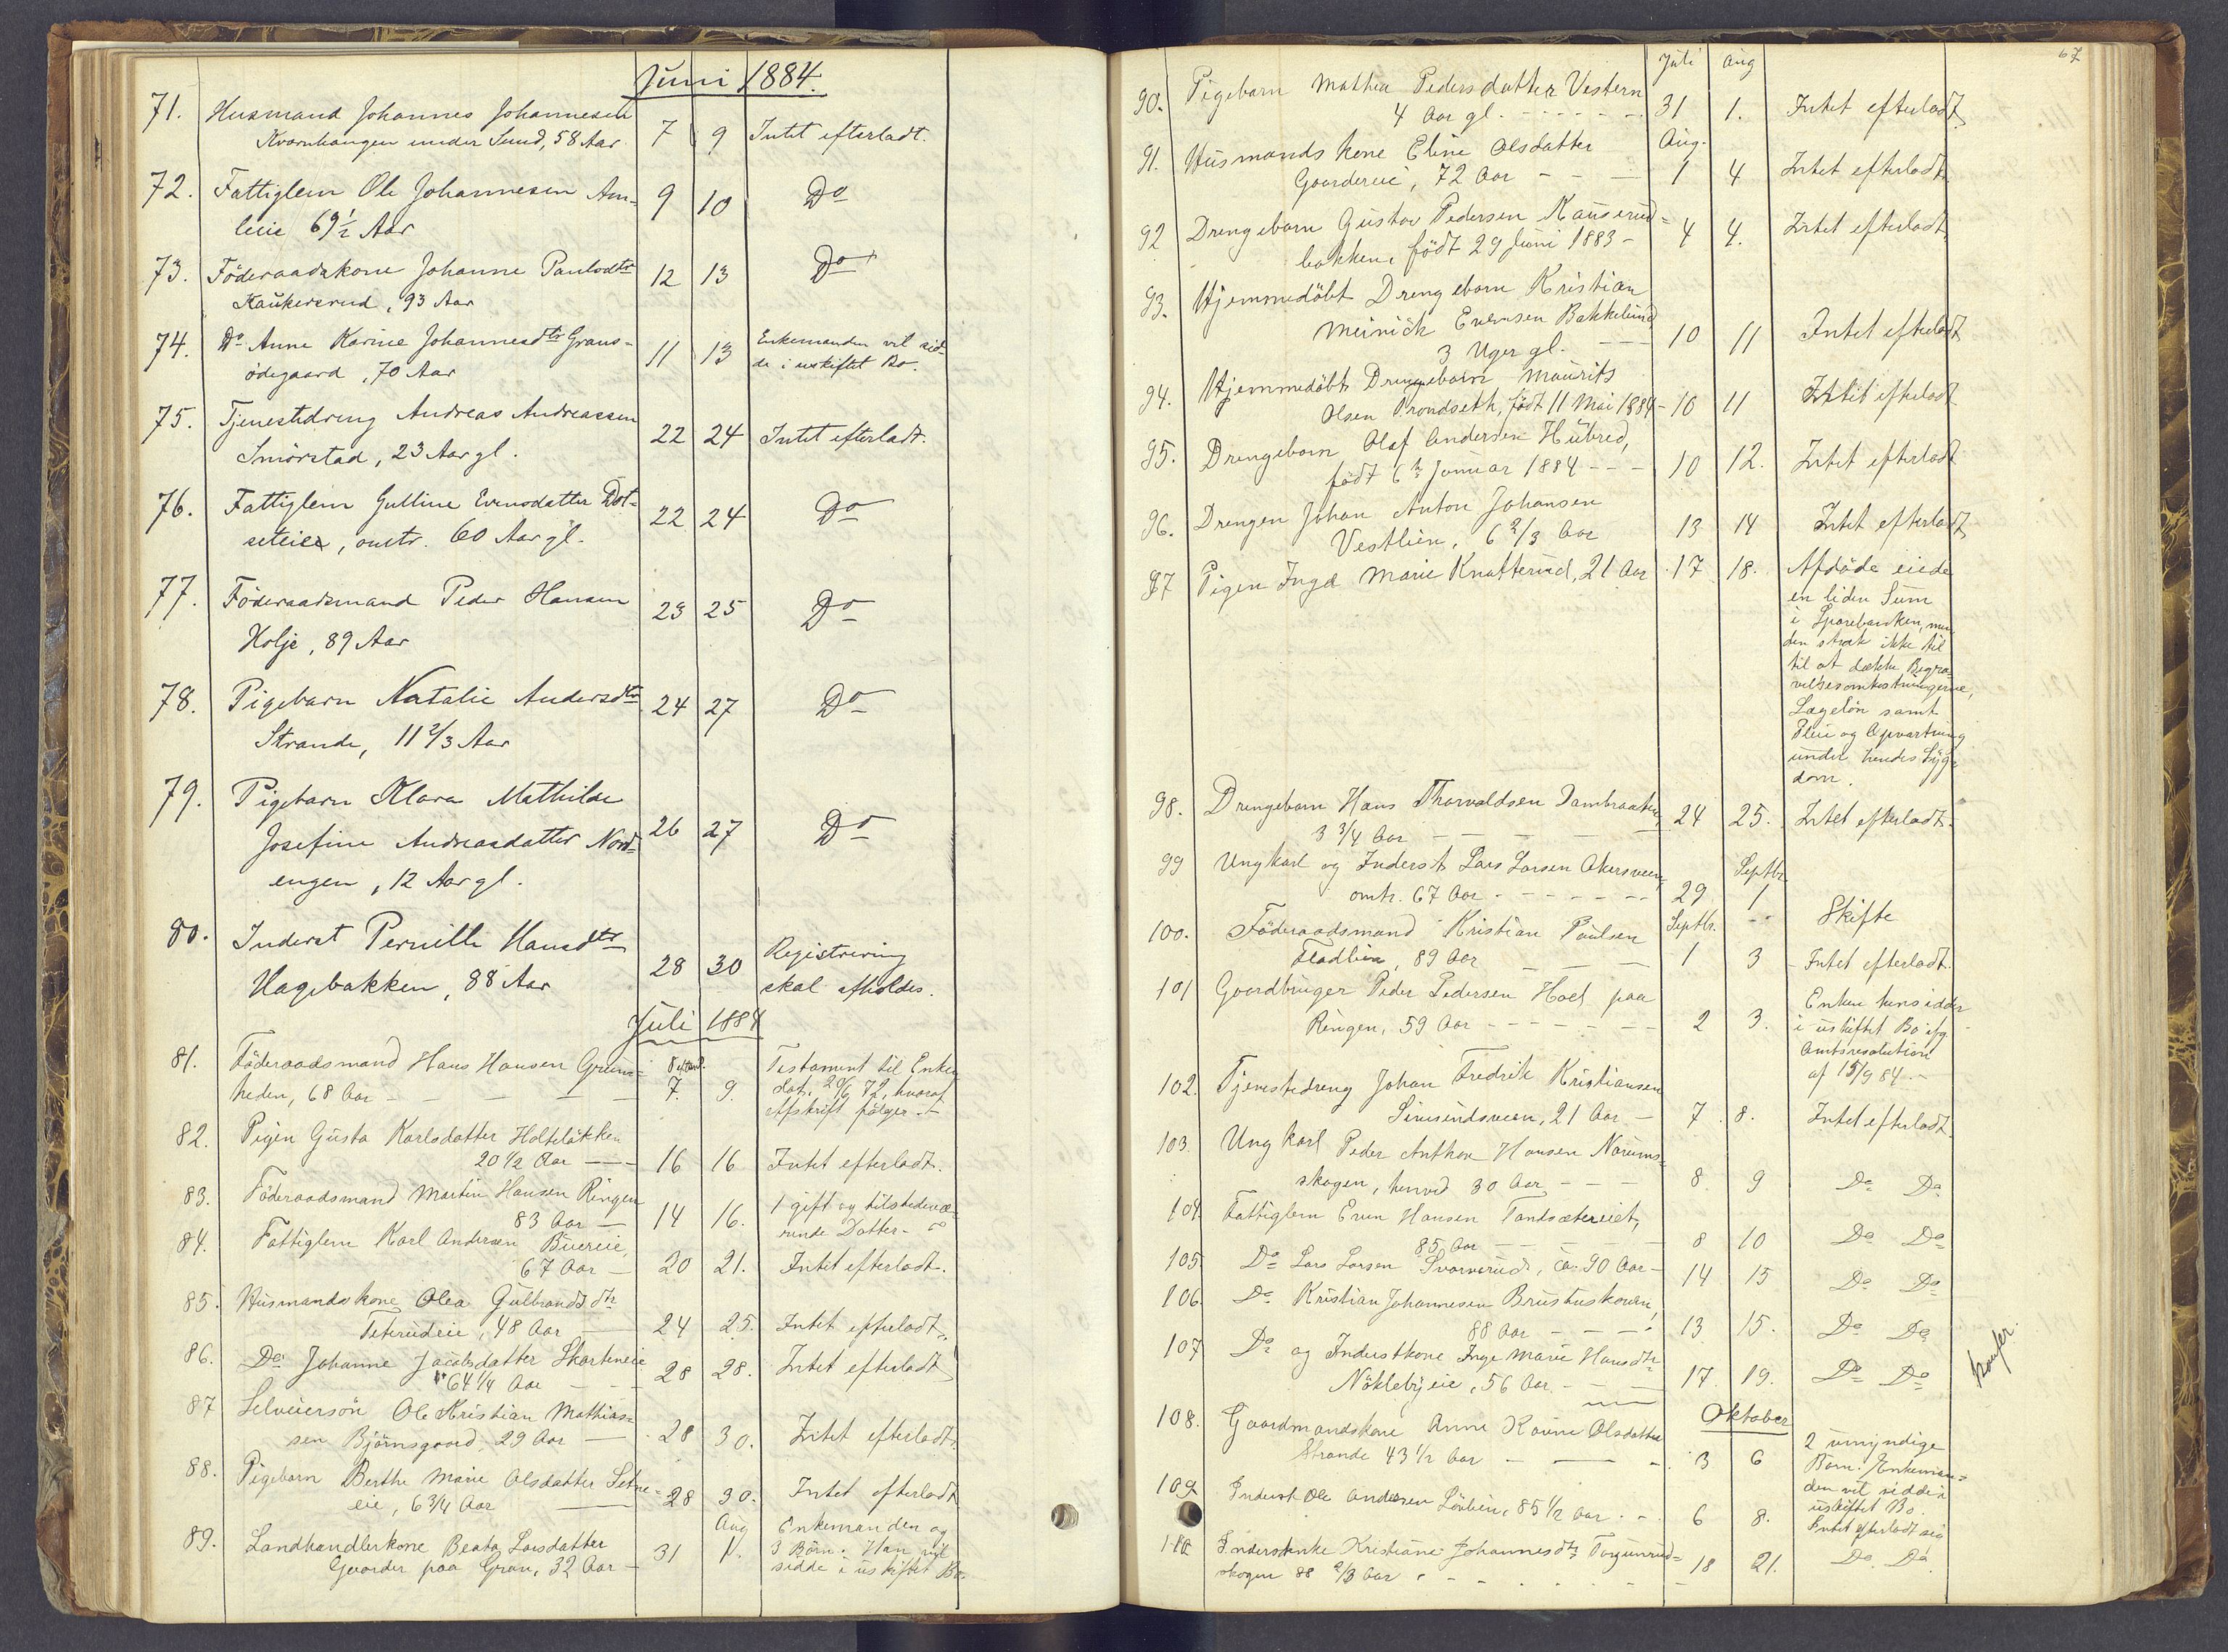 Juni 1884.
71. Husmand Johannes Johannesen
Kvarnhaugen under Sund, 58 Aar 7 9 Intet efterladt.
72. Fattiglem Ole Johannesen Am-
leie 69 1/2 Aar 9 10 Do
73. Föderaadskone Johanne Paulsdtr
Kaukererud, 93 Aar 12 13 Do
74. Do Anne Karine Johannesdtr Grans-
ödegaard, 70 Aar 11 13 Enkemanden vil sid-
de i uskiftet Bo.
75. Tjenestedreng Andreas Andreassen
Smörstad, 23 Aar gl. 22 24 Intet efterladt.
76. Fattiglem Gulline Evensdatter
omtr. 60 Aar gl. 22 24 Do
77. Föderaadsmand Peder Hansen
Kolje, 89 Aar 23 25 Do
78. Pigebarn Natalie Andersdtr
Strande, 11 2/3 Aar 24 27 Do
79. Pigebarn Klara Mathilde
Josefine Andreasdatter Nord-
engen, 12 Aar gl. 26 27 Do
80. Inderst Pernille Hansdtr
Hagebakken, 88 Aar 28 30 Registrering
skal afholdes.
Juli 1884
81. Föderaadsmand Hans Hansen Grim-
heden, 68 Aar 7. 9. Testament til Enken
dat. 20/6 72, hvoraf
Afskrift følger.
82. Pigen Gusta Karlsdatter Holteløkken
20 1/2 Aar 16 16 Intet efterladt.
83. Föderaadsmand Martin Hansen Ringen
83 Aar 14 16. 1 gift og tilstedevæ-
rende Datter
84. Fattiglem Karl Andersen Buereie,
67 Aar 20 21. Intet efterladt.
85. Husmandskone Olea Gulbrandsdtr
Teterudeie, 48 Aar 24 25. Intet efterladt.
86. Do Johanne Jacobsdatter Skarteneie
64 1/4 Aar 28 28. Intet efterladt
87 Selveiersøn Ole Kristian Mathias-
sen Björnsgaard, 29 Aar 28 30. Intet efterladt.
88. Pigebarn Berthe Marie Olsdatter Setne-
eie, 6 3/4 Aar 28 30. Intet efterladt
89. Landhandlerkone Beata Larsdatter
Gaarder paa Gran, 32 Aar 31 Aug 1. Enkemanden og
3 Børn. Han vil
sidde i uskiftet Bo.
67
Juli Aug
90. Pigebarn Mathea Pedersdatter Vestern
4 Aar gl. 31 1. Intet efterladt
Aug.
91. Husmandskone Eline Olsdatter
Gaardereie, 72 Aar 1 4 Intet efterladt.
92 Drengebarn Gustav Pedersen Kauserud-
bakken, født 29 Juni 1883 4 4. Intet efterladt.
93. Hjemmedöbt Drengebarn Kristian
Meinick Evensen Bakkelund
3 Uger gl. 10 11 Intet efterladt
94. Hjemmedöbt Drengebarn Maurits
Olsen Brondseth, født 11 Mai 1884 10 11 Intet efterladt
95. Drengebarn Olaf Andersen Hubred,
født 6te Januar 1884 10 12. Intet efterladt
96. Drengen Johan Anton Johansen
Vestlien, 6 2/3 Aar 13 14 Intet efterladt
97 Pigen Inga Marie Knatterud, 21 Aar 17 18. Afdøde eiede
en liden Sum
i Sparebanken, men
den strak ikke til
til at dække Begra-
velsesomkostningerne,
Lægeløn samt
Pleie og Opvartning
under hendes Syg-
dom.
98. Drengebarn Hans Thorvaldsen Dambraaten,
3 3/4 Aar 24 25. Intet efterladt.
Septbr.
99 Ungkarl og Inderst Lars Larsen Akersveen,
omtr. 67 Aar 29 1 Skifte
Septbr.
100. Föderaadsmand Kristian Paulsen
Fladlien, 89 Aar 1 3 Intet efterladt.
101 Gaardbruger Peder Pedersen Hoel paa
Ringen, 59 Aar 2 3. Enken hensidder
i uskiftet Bo ifg.
Amtsresolution
af 15/9 84.
102. Tjenestedreng Johan Fredrik Kristiansen
21 Aar 7. 8. Intet efterladt.
103. Ungkarl Peder Anthon Hansen Narums-
skogen, henved 30 Aar 8. 9 Do Do
104. Fattiglem Even Hansen Tandsætereiet,
85 Aar 8 10 Do Do
105. Do Lars Larsen Svarverud, ca. 90 Aar 14 15 Do Do
106. Do Kristian Johannesen Brustuskoven,
88 Aar 13 15. Do Do
107 Do og Inderstkone Inge Marie Hansdtr
Nöklebyeie, 56 Aar 17. 19. Do Do
Oktober
108. Gaardmandskone Anne Karine Olsdatter
Strande 43 1/2 Aar 3 6 2 umyndige
Børn. Enkeman-
den vil sidde i
uskiftet Bo.
109. Inderst Ole Andersen Lövlien, 85 1/2 Aar 6 8. Intet efterladt sig
110 Inderstenke Kristiane Johannesdtr Torgunrud-
skogen 88 2/3 Aar 18 21. Do Do